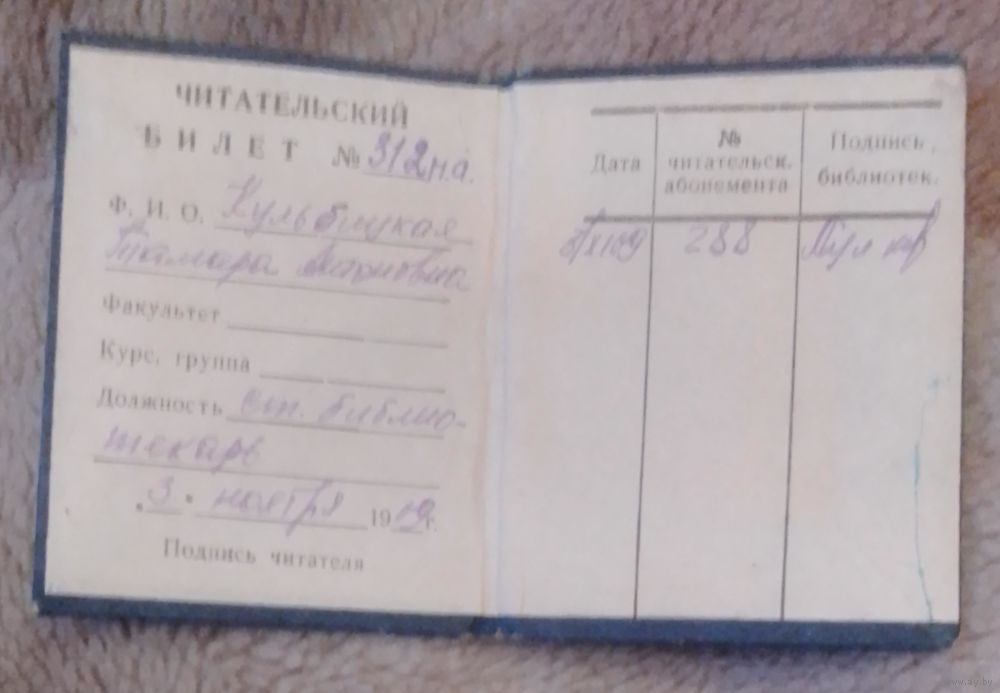 ЧИТАТЕЛЬСКИЙ
БИЛЕТ № 312 на.
Ф. И. О. Кульбицкая
Тамара
Факультет
Курс, группа
Должность ст. библио-
текарь
"3" ноября 19 г.
Подпись читателя
Дата
№
читательск.
абонемента
Подпись
библиотек.
288